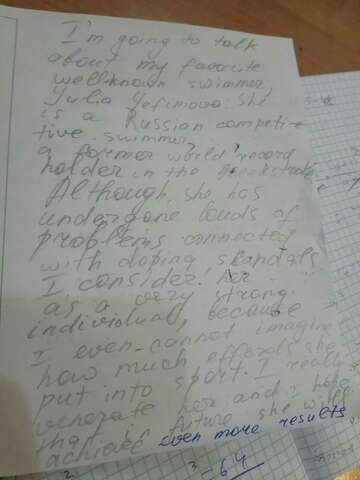 I'm going to talk
about my favorite
well-known swimmer,
Yulia Yefimova. She
is a Russian competi-
tive swimmer,
a former world record
holder in the
Although she has
undergone loads of
problems connected
with doping skandals
I consider her
as a very strong
individual, because
I even cannot imagine
how much effords she
put into sport. I really
venerate her and I hope
that in future she will
achieve even more results
3-64